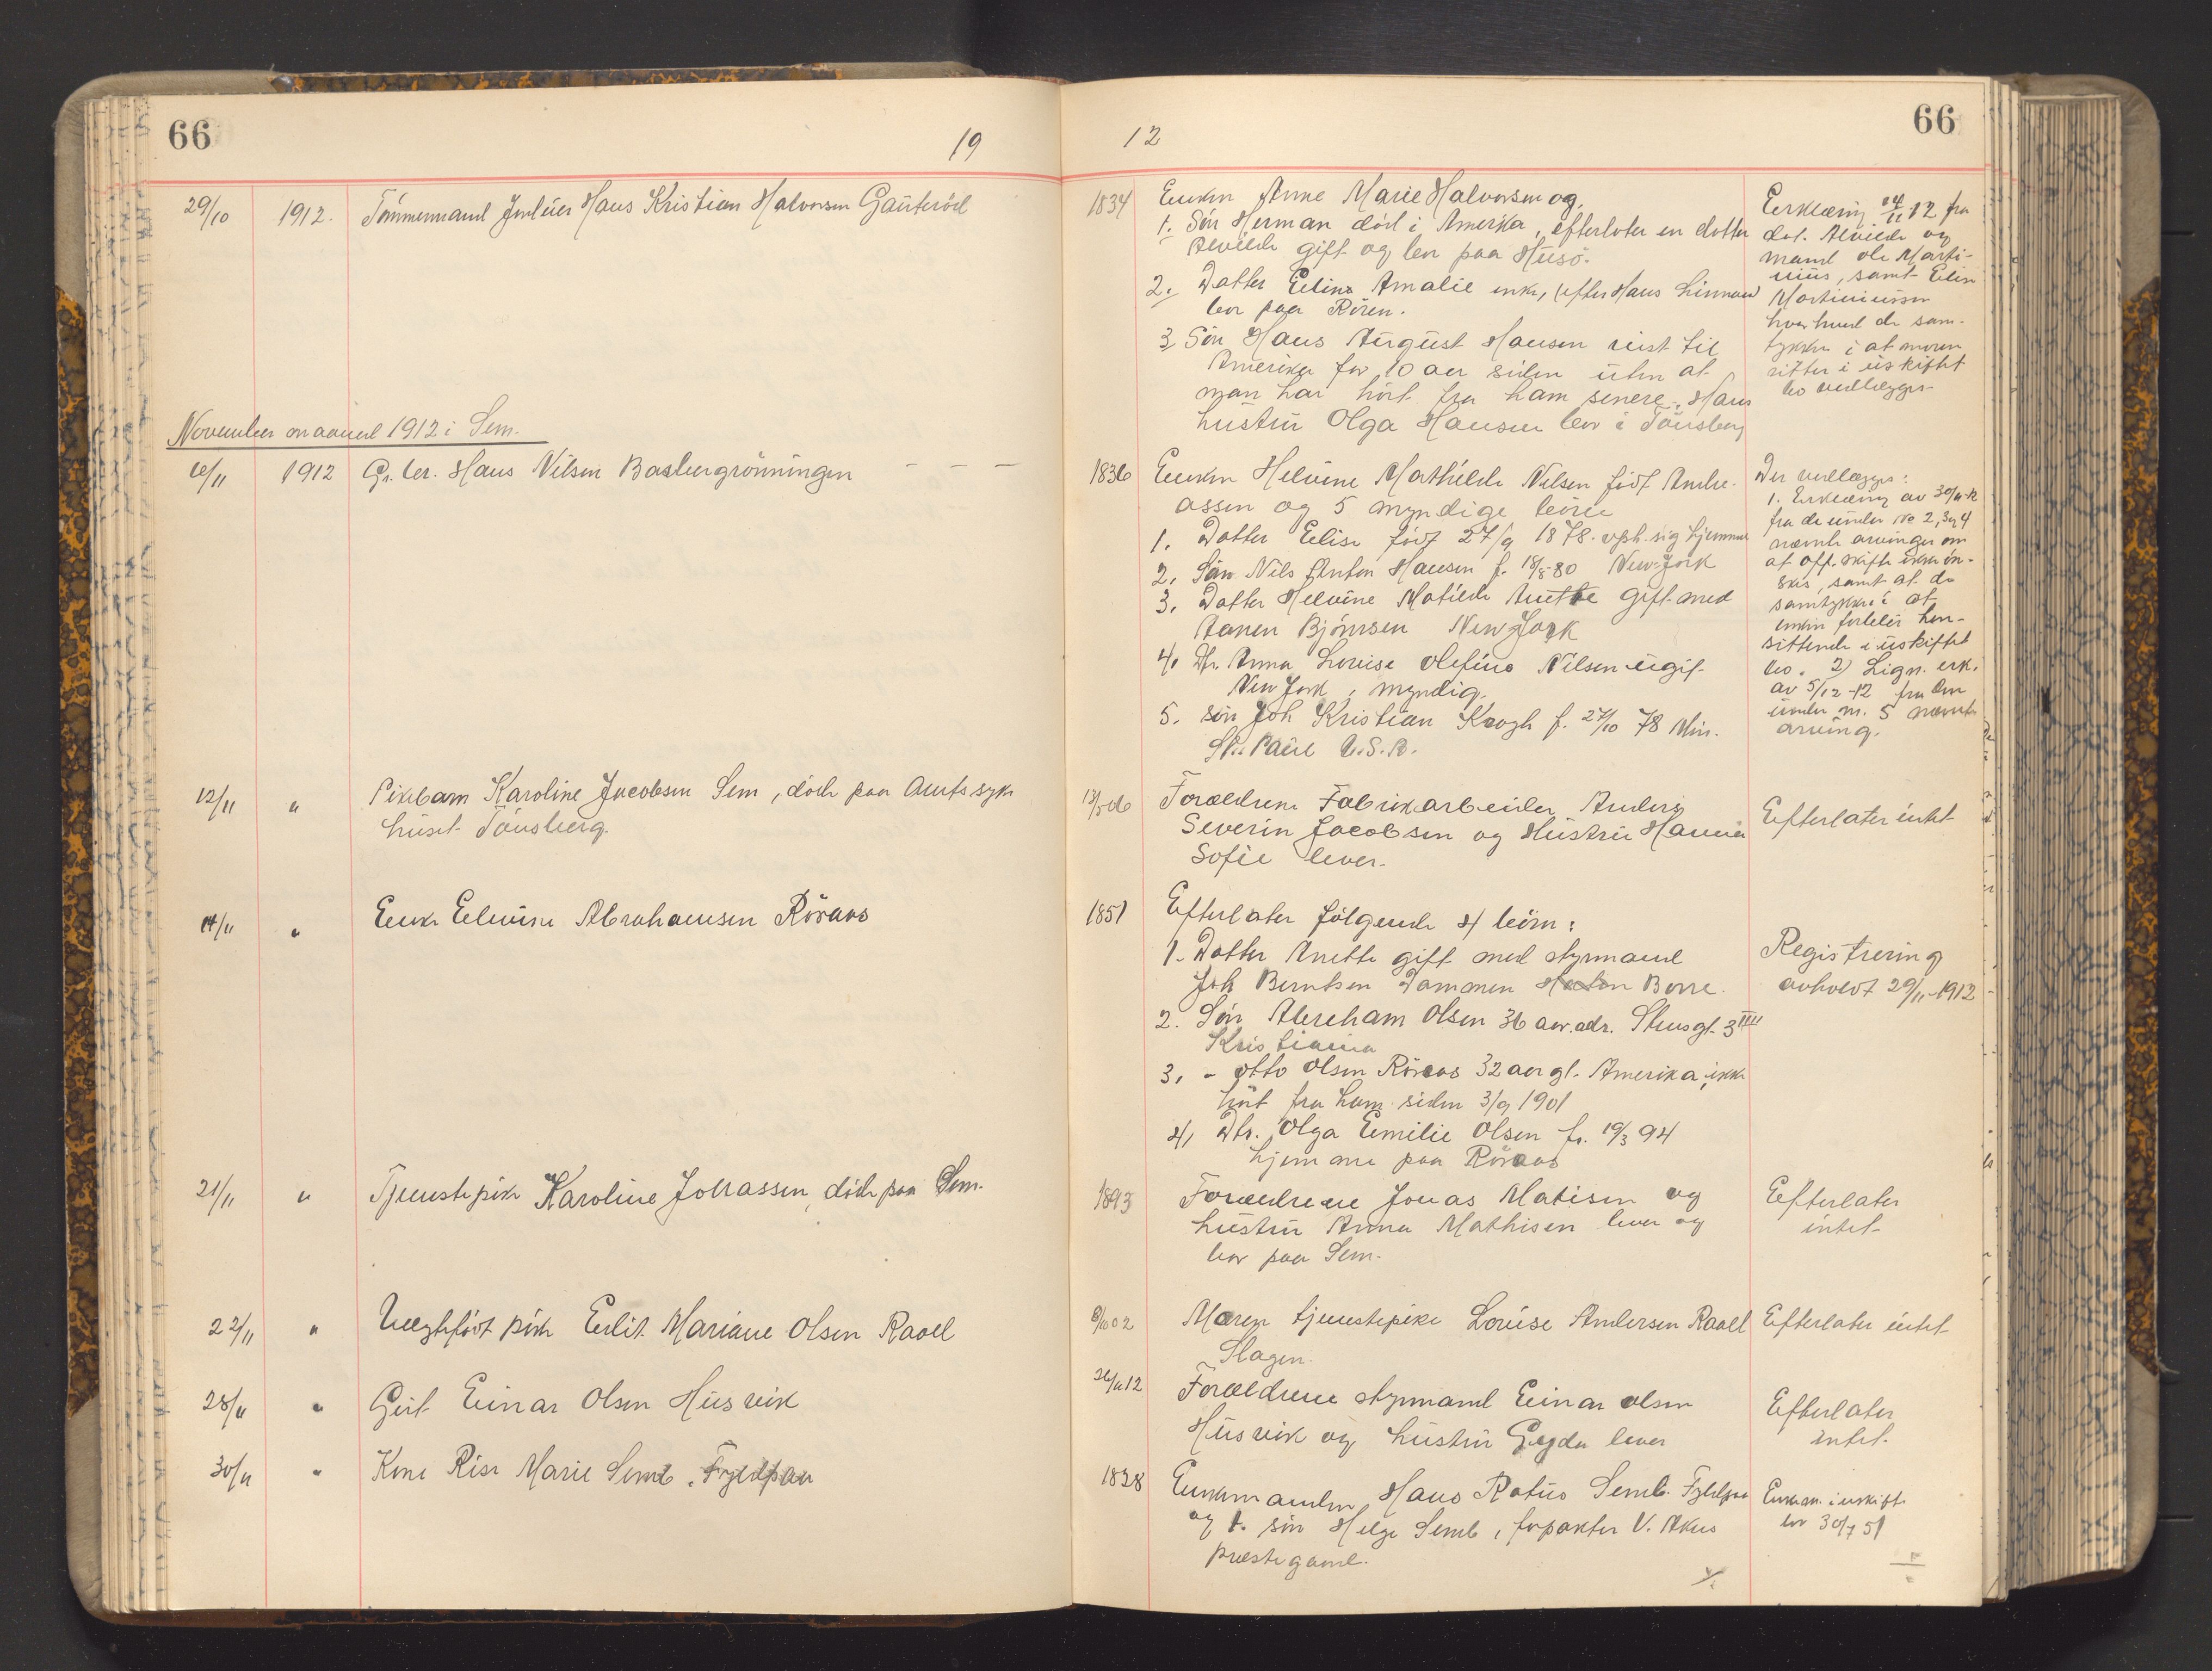 66
19
12
66
29/10 1912. Tømmermand Inderst Hans Kristian Halvorsen Gauterød
1834 Enken Anne Marie Halvorsen og,
1. Søn Herman død i Amerika, efterlater en datter
Alvilde gift og bor paa Husø.
2. Datter Elina Amalie enke, (efter Hans Linnau)
bor paa Røren.
3. Søn Hans August Hansen reist til
Amerika for 10 aar siden uten at
man har hørt fra ham senere. Hans
hustru Olga Hansen bor i Tønsberg
Erklæring 14/11 12 fra
dat. Alvilde og
mand Ole Marti-
nius, samt Elin
Martiniussen
hvorhved de sam-
tykker i at moren
sitter i uskiftet
bo vedlægges
November maaned 1912 i Sem.
6/11 1912 Gr. br. Hans Nilsen Basbergrønningen - - -
1836 Enken Helvine Mathilde Nilsen født Andre-
assen og 5 myndige børn
1. Datter Elise født 27/9 1878. oph. sig hjemme
2. Søn Nils Anton Hansen f. 18/8 80 New-York
3. Datter Helvine Matilde Anette gift med
Aanen Bjørnsen New York
4. Dtr. Anna Lovise Olefine Nilsen ugift
New York, myndig.
5. søn Joh Kristian Krogh f. 27/10 78 Min.
St. Paul U.S.A.
Der vedlægges:
1. Erklæring av 30/11-12
fra de under No 2, 3 og 4
nævnte arvinger om
at off. skifte ikke øn-
skes, samt at de
samtykker i at
enken forblir hen-
sittende i uskiftet
bo. 2) Lign. erk.
av 5/12-12 fra den
under nr. 5 nævnte
arving.
12/11 " Pikebarn Karoline Jacobsen Sem, døde paa Amtssyke
huset Tønsberg.
13/5 06 Forældrene Fabrikarbeider Anders
Severin Jacobsen og Hustru Hanna
Sofie lever.
Efterlater intet
14/11 " Enke Elevine Abrahamsen Røraas
1851 Efterlater følgende 4 børn:
1. Datter Anette gift med styrmand
Joh Berntsen Dammen Borre.
2. Søn Abraham Olsen 36 aar. adr. Stensgt. 3 IIII
Kristiania
3. - Otto Olsen Røraas 32 aar gl. Amerika, ikke
hørt fra ham siden 3/9 1901
4. Dtr. Olga Emilie Olsen f. 19/3 94
hjemme paa Røraas
Registrering
avholdt 29/11-1912
21/11 " Tjenestepike Karoline Jonassen, døde paa Sem.
1893 Forældrene Jonas Matisen og
hustru Anna Mathisen lever og
bor paa Sem.
Efterlater
intet
22/11 " Uegtefødt pike Erlit Mariane Olsen Raael
02 Moren tjenestepike Lovise Andersen Raael
Slagen.
Efterlater intet
28/11 " Gut Einar Olsen Husvik
26/11 12 Forældrene styrmand Einar Olsen
Husvik og hustru Gyda lever
Efterlater
intet.
30/11 " Kone Risa Marie Semb. Fyldpaa
1838 Enkemanden Hans Ratus Semb. Fyldpaa
og 1. søn Helge Semb, forpakter V. Akers
prestegaard.
Enkem. i uskift.
bo 30/7 51